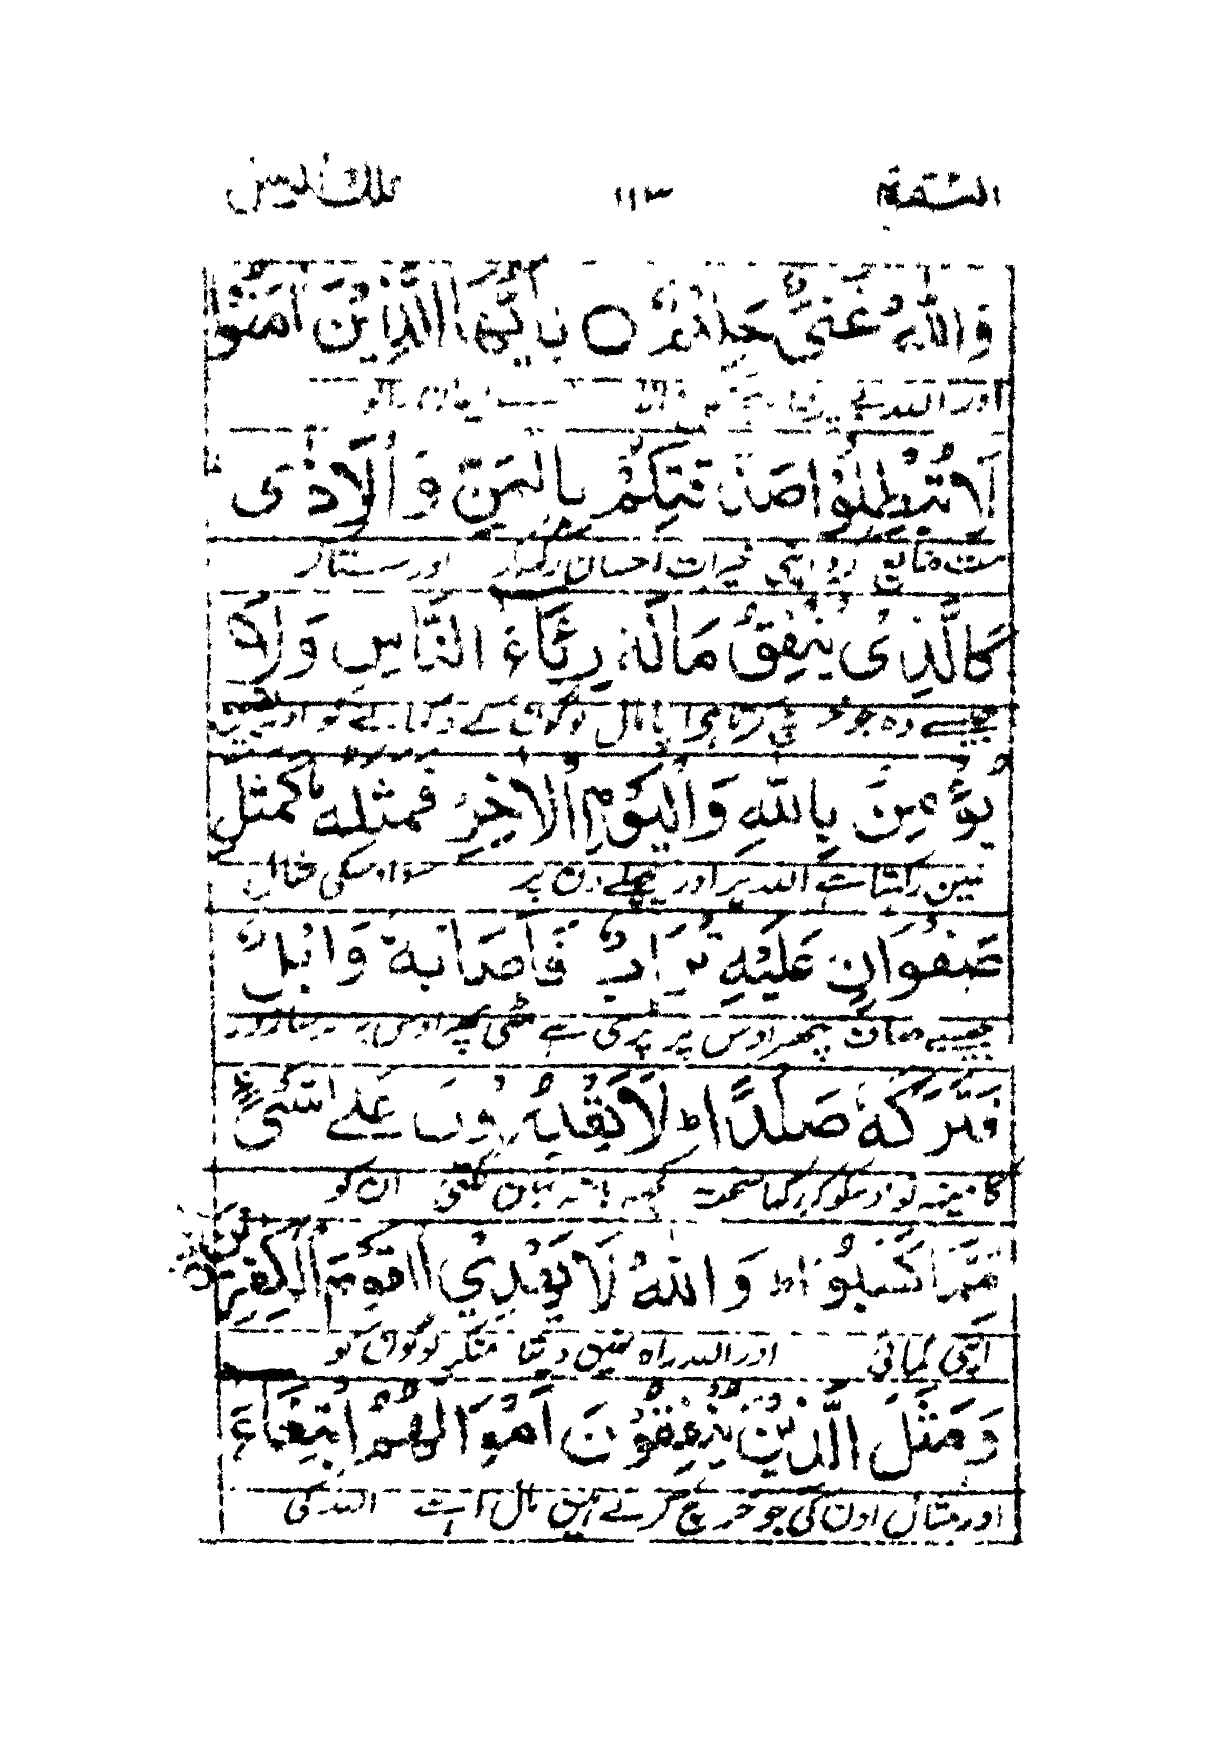 البقرة ۱۱۳ تلك الرسل
وَاللهُ غَنِيٌّ حَلِيْمٌ ○ يٰاَيُّهَا الَّذِيْنَ اٰمَنُوْا
اور اللہ بے
لَا تُبْطِلُوْا صَدَقٰتِكُمْ بِالْمَنِّ وَالْاَذٰى
مت ضائع کرو اپنی خیرات احسان رکھکر اور ستاکر
كَالَّذِىْ يُنْفِقُ مَالَهٗ رِئَاءَ النَّاسِ وَلَا
جیسے وہ جو خرچ کرتا ہی اپنا مال لوگوں کے دکھانے کو اور یقین
يُؤْمِنُ بِاللهِ وَالْيَوْمِ الْاٰخِرِ فَمَثَلُهٗ كَمَثَلِ
نہین رکھتا ہے اللہ پر اور پچھلے دن پر سو اوسکی مثال
صَفْوَانٍ عَلَيْهِ تُرَابٌ فَاَصَابَهٗ وَابِلٌ
جیسے صاف پتھر اوس پر پڑی ہے مٹی پھر اوس پر برسا زور
فَتَرَكَهٗ صَلْدًا ط لَا يَقْدِرُوْنَ عَلٰى شَىْءٍ
کا مینہ تو اوسکو کر رکھا سخت کچھ ہاتھ نہین لگتی ان کو
مِّمَّا كَسَبُوْا ط وَاللهُ لَا يَهْدِي الْقَوْمَ الْكٰفِرِيْنَ ○
اپنی کمائی اور اللہ راہ نہین دیتا منکر لوگوں کو
وَمَثَلُ الَّذِيْنَ يُنْفِقُوْنَ اَمْوَالَهُمُ ابْتِغَاءَ
اور مثال اون کی جو خرچ کرتے ہین مال اللہ کی